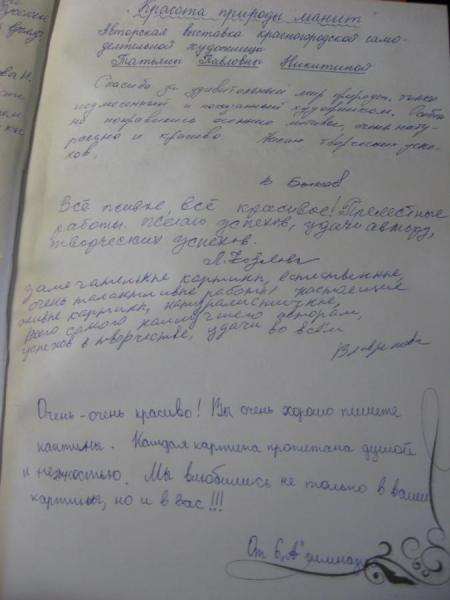 "Красота природы манит"
Авторская выставка красногородской само-
деятельной художницы
Татьяны Павловны Никитиной
Спасибо за удивительный мир природы, тонко
подмеченный и показанный художником.
понравились осенние мотивы, очень нату-
рально и красиво. Желаю творческих успе-
хов.
В
Всё живое, всё красивое! Прелестные
работы. Желаю успехов, удачи автору,
творческих успехов.
Л. Козлова
замечательные картины, естественные,
очень талантливые работы! настоящие
живые картины, натуралистичные,
Всего самого наилучшего авторам,
успехов в творчестве, удачи во всём
Очень-очень красиво! Вы очень хорошо пишете
картины. Каждая картина пропитана душой
и нежностью. Мы влюбились не только в ваши
картины, но и в вас!!!
От 6 „А" гимназ